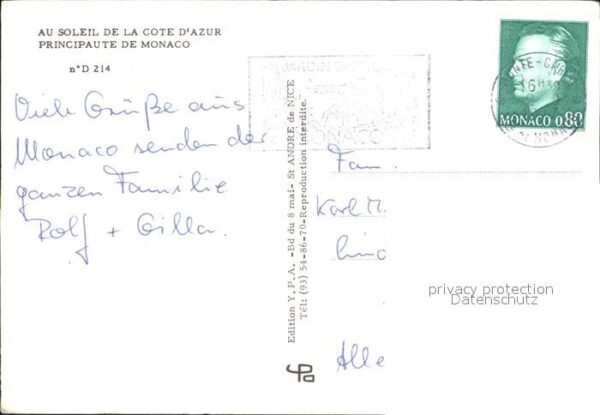 AU SOLEIL DE LA COTE D'AZUR
PRINCIPAUTE DE MONACO
n°D 214
Viele Grüße aus
Monaco senden der
ganzen Familie
Rolf + Gilla.
Edition Y. P. A. -Bd du 8 mai- St ANDRE de NICE
Tél: (93) 54-86-70-Reproduction interdite.
JARDIN
MONACO
MONACO 0,80
Fam.
Karl M.
Alle
privacy protection
Datenschutz